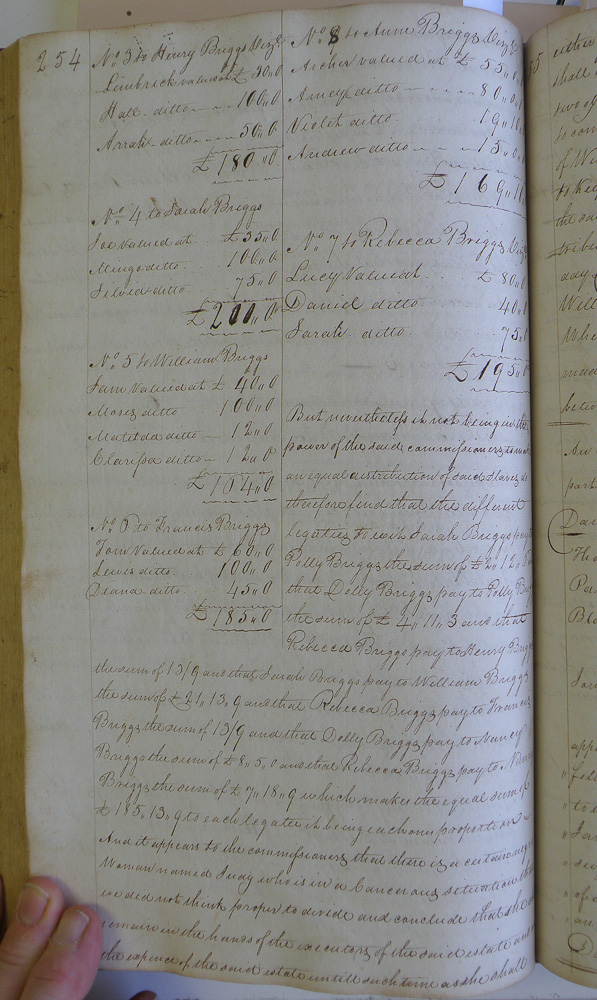 254
No. 3 to Henry Briggs Vizt
Limbrick valued at £ 30,,0
Hall ditto 100,,0
Arrah ditto 50,,0
£180,,0
No. 4 to Sarah Briggs
Joe Valued at £35,,0
Mingo ditto 100,,0
Silvia ditto 75,,0
£210,,0
No. 5 to William Briggs
Sam Valued at £ 40,,0
Moses ditto 100,,0
Matilda ditto 12,,0
Clarissa ditto 12,,0
£164,,0
No. 6 to Francis Briggs
Tom Valued at £ 60,,0
Lewis ditto 100,,0
Deana ditto 45,,0
£185,,0
No. 8 to Anne Briggs Vizt
Archer valued at £ 55,,0
Amey ditto 80,,0
Violet ditto 19,,10
Andrew ditto 15,,0
£169,,10
No. 7 to Rebecca Briggs Vizt
Lucy Valued at £ 80,,
Daniel ditto 40,,
Sarah ditto 75,,
£195,,0
But nevertheless it not being in the
power of the said commissioners to make
an equal distribution of said slaves do
therefore find that the different
legatees to wit Sarah Briggs pay
Polly Briggs the sum of £ 2,,12,,
that Dolly Briggs pay to Polly
the sum of £ 4,,11,,3 and that
Rebecca Briggs pay to Henry Briggs
the sum of 13/9 and that Sarah Briggs pay to William Briggs
the sum of £ 21,,13,,9 and that Rebecca Briggs pay to Francis
Briggs the sum of 13/9 and that Dolly Briggs pay to Nancy
Briggs the sum of £ 8,,5,,0 and that Rebecca Briggs pay to
Briggs the sum of £ 7,,18,,9 which makes the equal sum of
£ 185,,13,,9 to each legatee it being each one proportion
And it appears to the commissioners that there is a certain negro
Woman named Judy who is in a Cancerous situation that
we did not think proper to divide and conclude that she
remain in the hands of the executors of the said estate and
the expence of the said estate untill such time as she shall